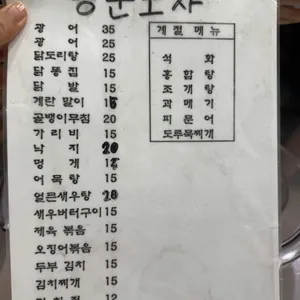 광어 35
광어 25
닭도리탕 25
닭똥집 15
닭발 15
계란말이 15
골뱅이무침 20
가리비 15
낙지 20
멍게 15
어묵탕 15
얼큰새우탕 20
새우버터구이 15
제육볶음 15
오징어볶음 15
두부김치 15
김치찌개 15
12
계절메뉴
석화
홍합탕
조개탕
과메기
피문어
도루묵찌개